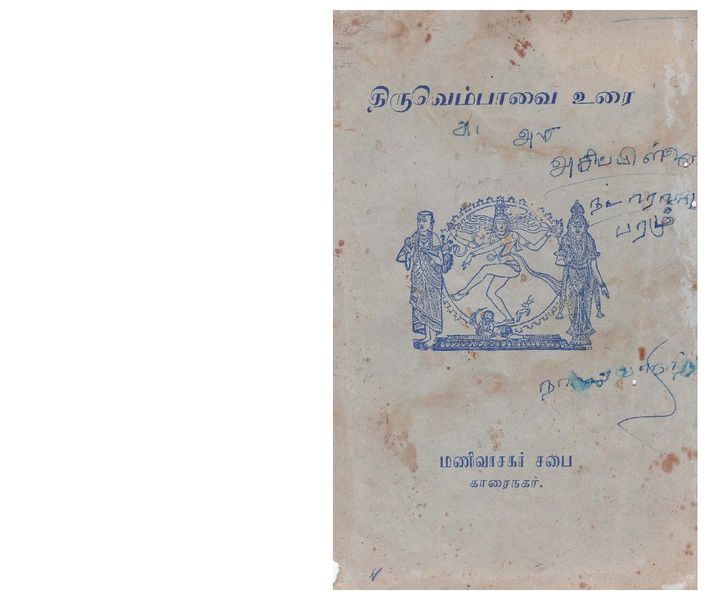 திருவெம்பாவை உரை
அ. அம
அசிப்பிள்ளை
நடராஜ
பரம
மணிவாசகர் சபை
காரைநகர்.